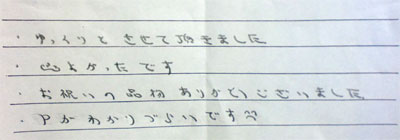 ・ゆっくりと させて頂きました
・心よかったです
・お祝いの品物 ありがとうございました
・Pがわかりづらいです